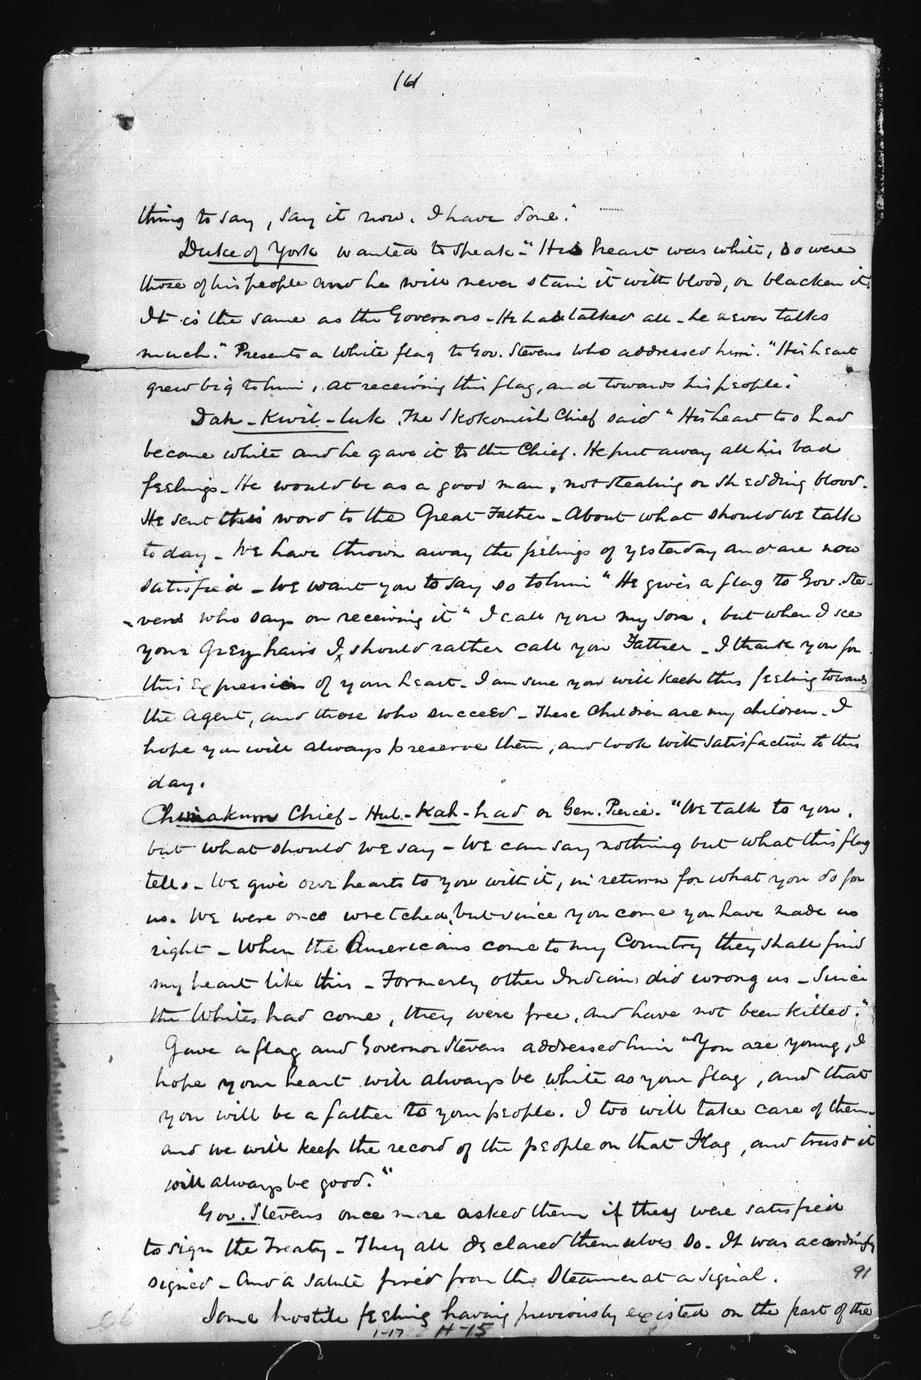 161
thing to say, say it now. I have done."
Duke of York wanted to speak - "His heart was white, so were
those of his people and he will never stain it with blood, or blacken it.
It is the same as the Governors - He had talked all - he never talks
much." Presents a white flag to Gov. Stevens who addressed him. "His heart
grew big to him, at receiving this flag, and towards his people."
Dah-Kwil-luk, The Skokomish Chief said "His heart too had
become white and he gave it to the Chief. He put away all his bad
feelings - He would be as a good man, not stealing or shedding blood.
He sent this word to the Great Father - About what should we talk
to day - We have thrown away the feelings of yesterday and are now
satisfied - We want you to say so to him" He gives a flag to Gov. Ste-
vens who says on receiving it "I call you my son, but when I see
your Grey hairs I should rather call you Father - I thank you for
this Expression of your heart - I am sure you will keep this feeling towards
the agent, and those who succeed - These Children are my children. I
hope you will always preserve them, and look with satisfaction to this
day.
Chimakum Chief - Hul-Kah-had or Gen. Pierce. "We talk to you,
but what should we say - We can say nothing but what this flag
tells - We give our hearts to you with it, in return for what you do for
us. We were once wretched, but since you come you have made us
right - When the Americans come to my Country they shall find
my heart like this - Formerly other Indians did wrong us - Since
the Whites had come, they were free, and have not been killed."
Gave a flag and Governor Stevens addressed him "You are young, I
hope your heart will always be white as your flag, and that
you will be a father to your people. I too will take care of them
and we will keep the record of the people on that Flag, and trust it
will always be good."
Gov. Stevens once more asked them if they were satisfied
to sign the Treaty - They all declared themselves so. It was accordingly
signed - And a salute fired from the Steamer at a signal.
91
Some hostile feeling having previously existed on the part of the
66
1-17 H-15